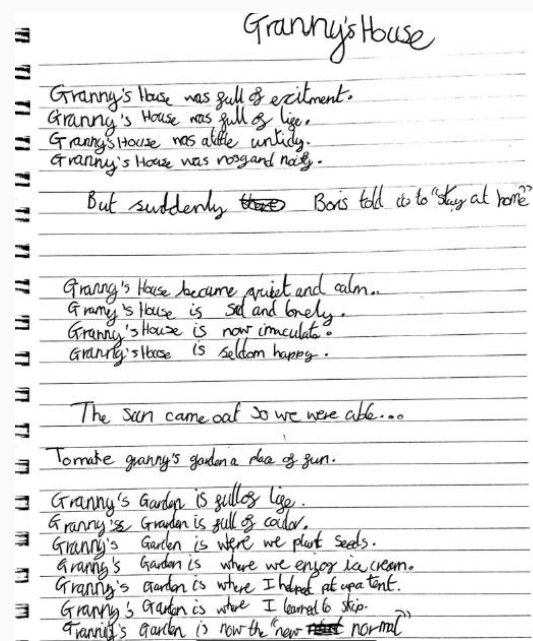 Granny's House
Granny's House was full of exitment.
Granny's House was full of life.
Granny's House was a little untidy.
Granny's House was and noisy.
But suddenly Boris told us to "stay at home"
Granny's House became quiet and calm..
Granny's House is sad and lonely.
Granny's House is now imaculate.
Granny's House is seldom happy.
The sun came out so we were able...
To make granny's garden a place of fun.
Granny's Garden is full of life.
Granny's Graden is full of color.
Granny's Garden is were we plant seeds.
Granny's Garden is where we enjoy ice cream.
Granny's Garden is where I helped put up a tent.
Granny's Garden is where I learned to skip.
Granny's Garden is now the "new normal"